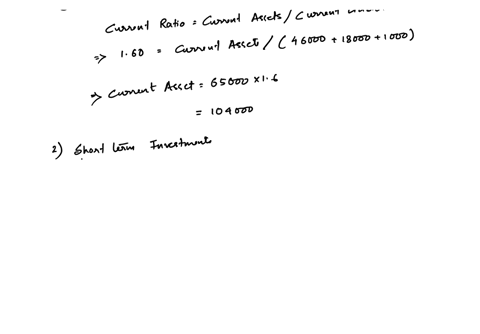 Current Ratio = Current Assets / Current
=> 1.60 = Current Assets / (46000 + 18000 + 1000)
=> Current Asset = 65000 × 1.6
= 104000
2) Short term Investments